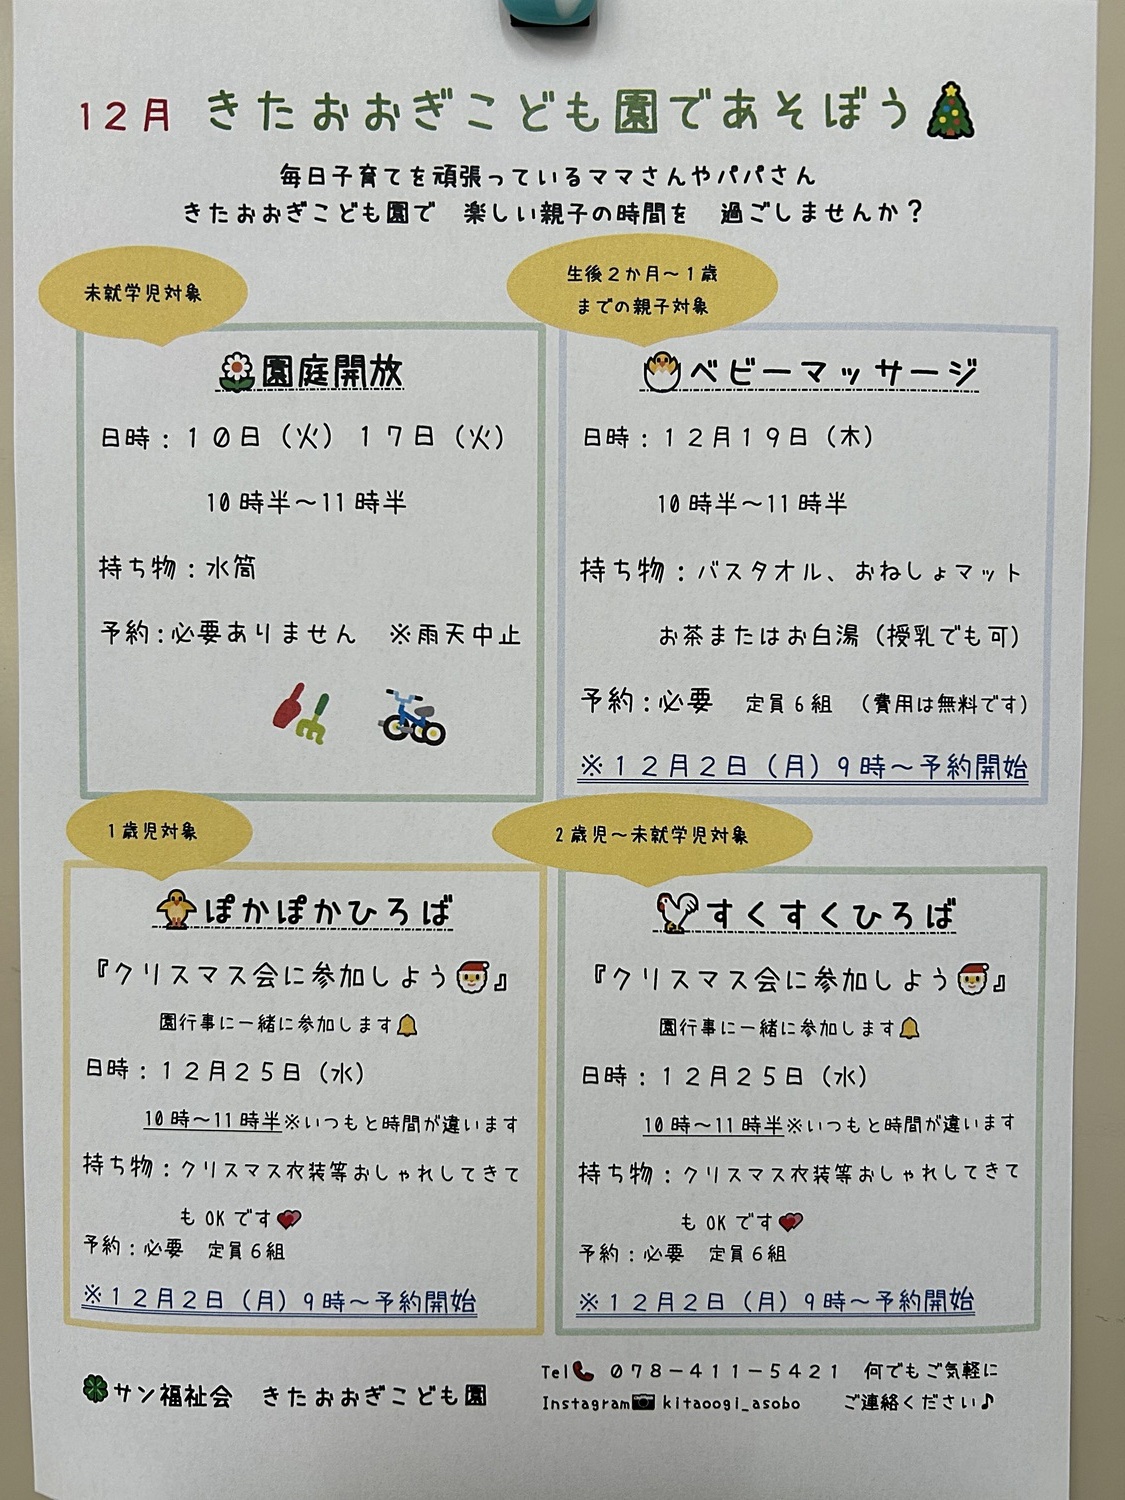 12月 きたおおぎこども園であそぼう
毎日子育てを頑張っているママさんやパパさん
きたおおぎこども園で 楽しい親子の時間を 過ごしませんか？
未就学児対象
園庭開放
日時：１０日（火）１７日（火）
10時半～11時半
持ち物：水筒
予約：必要ありません ※雨天中止
生後２か月～１歳
までの親子対象
ベビーマッサージ
日時：１２月１９日（木）
10時半～11時半
持ち物：バスタオル、おねしょマット
お茶またはお白湯（授乳でも可）
予約：必要 定員６組 （費用は無料です）
※１２月２日（月）９時～予約開始
１歳児対象
ぽかぽかひろば
『クリスマス会に参加しよう🎅』
園行事に一緒に参加します🔔
日時：１２月２５日（水）
10時～11時半※いつもと時間が違います
持ち物：クリスマス衣装等おしゃれしてきて
もOKです💕
予約：必要 定員６組
※１２月２日（月）９時～予約開始
２歳児～未就学児対象
すくすくひろば
『クリスマス会に参加しよう🎅』
園行事に一緒に参加します🔔
日時：１２月２５日（水）
10時～11時半※いつもと時間が違います
持ち物：クリスマス衣装等おしゃれしてきて
もOKです💕
予約：必要 定員６組
※１２月２日（月）９時～予約開始
サン福祉会 きたおおぎこども園
Tel📞 ０７８－４１１－５４２１ 何でもご気軽に
Instagram📷kitaoogi_asobo ご連絡ください♪